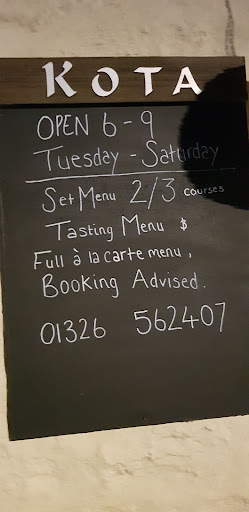 KOTA
OPEN 6-9
Tuesday - Saturday
Set Menu 2/3 courses
Tasting Menu $
Full à la carte menu,
Booking Advised.
01326 562407